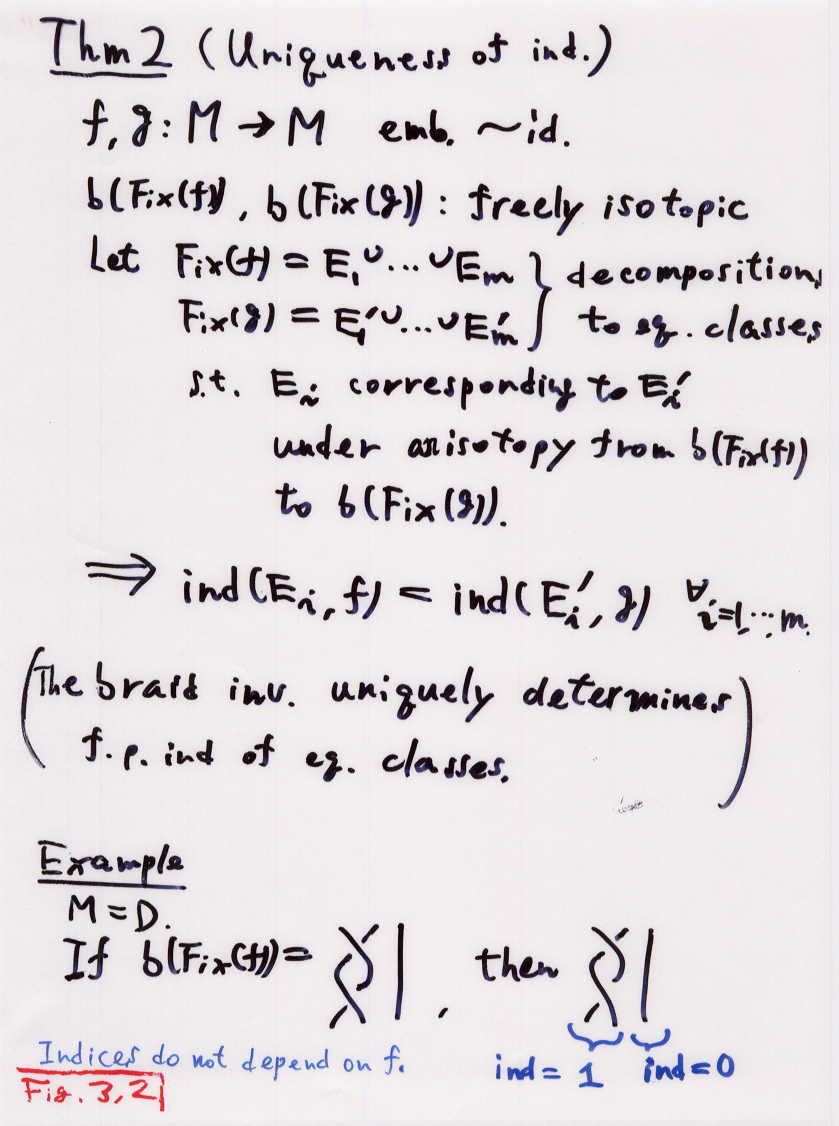 Thm 2 (Uniqueness of ind.)
f, g : M → M emb. ~ id.
b(Fix(f)), b(Fix(g)) : freely isotopic
Let Fix(f) = E₁ ∪ ... ∪ Em } decompositions
Fix(g) = E₁′ ∪ ... ∪ Em′ } to eq. classes
s.t. Ei corresponding to Ei′
under an isotopy from b(Fix(f))
to b(Fix(g)).
⟹ ind(Ei, f) = ind(Ei′, g) ∀i=1,...,m.
(The braid inv. uniquely determines
f.p. ind of eq. classes.)
Example
M = D.
If b(Fix(f)) = , then
Indices do not depend on f. ind = 1 ind = 0
Fig. 3,2